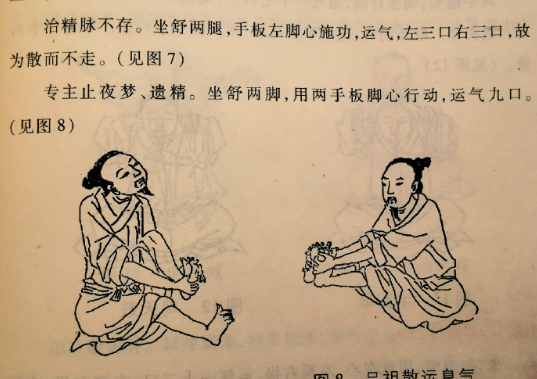 治精脉不存。坐舒两腿,手板左脚心施功,运气,左三口右三口,故
为散而不走。(见图7)
专主止夜梦、遗精。坐舒两脚,用两手板脚心行动,运气九口。
(见图8)
图8 吕祖散运息气